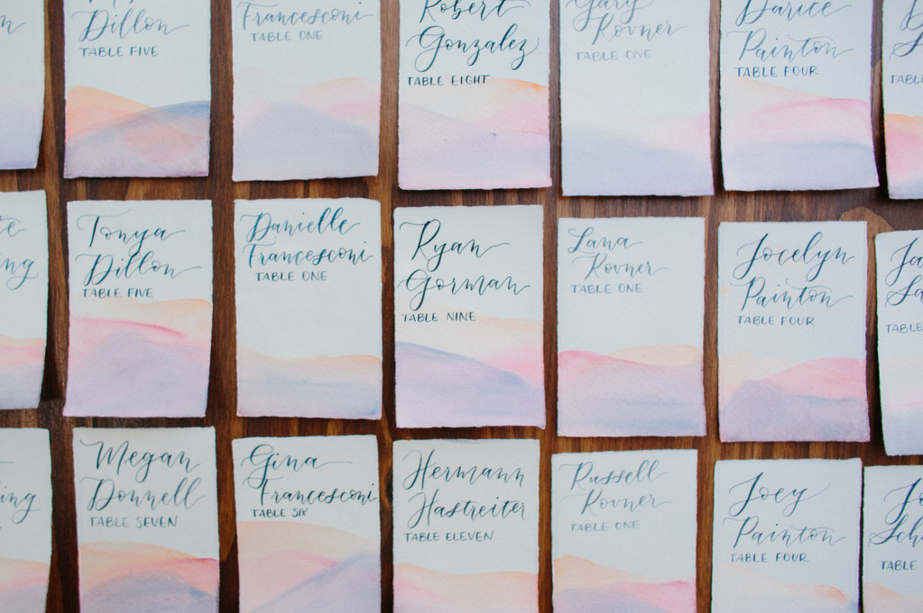 Dillon
TABLE FIVE
Francesconi
TABLE ONE
Robert
Gonzalez
TABLE EIGHT
Gary
Rovner
TABLE ONE
Darice
Painton
TABLE FOUR
TABLE
Tonya
Dillon
TABLE FIVE
Danielle
Francesconi
TABLE ONE
Ryan
Gorman
TABLE NINE
Lana
Rovner
TABLE ONE
Jocelyn
Painton
TABLE FOUR
TABLE
Megan
Donnell
TABLE SEVEN
Gina
Francesconi
TABLE SIX
Hermann
Hastreiter
TABLE ELEVEN
Russell
Rovner
TABLE ONE
Joey
Painton
TABLE FOUR
TABLE